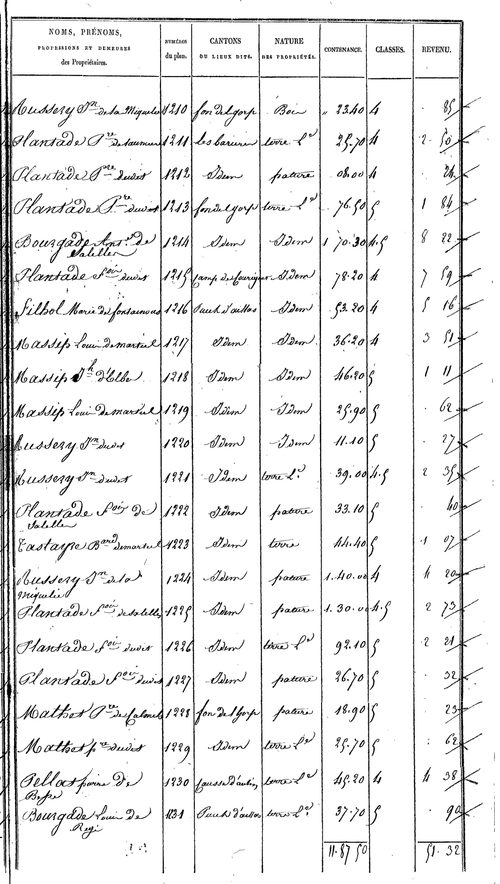 NOMS, PRÉNOMS, PROFESSIONS ET DEMEURES des Propriétaires. | NUMÉROS du plan. | CANTONS OU LIEUX DITS. | NATURE DES PROPRIÉTÉS. | CONTENANCE. | CLASSES. | REVENU.
Aussery Jn de la Miquelie 1210 fon del gorp Bois " 23.40 4 . 85
Plantade Pre 1211 terre Ld 25.70 4 2 50
Plantade Pre dudit 1212 Idem pature 08.00 4 . 24
Plantade Pre dudit 1213 fon del gorp terre Ld 76.50 5 1 84
Bourgade Ant. de Salelles 1214 Idem Idem 1 70.30 4.5 8 22
Plantade Foix dudit 1215 Idem 78.20 4 7 59
Filhol Marie de fontaynous 1216 Puech d'aussas Idem 53.20 4 5 16
Massip Louis de martiel 1217 Idem Idem 36.20 4 3 51
Massip Jh d'Elbe 1218 Idem Idem 46.20 5 1 11
Massip Louis de martiel 1219 Idem Idem 25.90 5 . 62
Aussery Jn dudit 1220 Idem Idem 11.10 5 . 27
Aussery Jn dudit 1221 Idem terre Ld 39.00 4.5 2 35
Plantade Foix de Salelles 1222 Idem pature 33.10 5 . 40
Tastayre Bard de martiel 1223 Idem terre 44.40 5 1 07
Aussery Jn de la Miquelie 1224 Idem pature 1.40.00 4 4 20
Plantade Foix de Salelles 1225 Idem pature 1.30.00 4.5 2 73
Plantade Foix dudit 1226 Idem terre Ld 92.10 5 2 21
Plantade Foix dudit 1227 Idem pature 26.70 5 . 32
Mathet Pre de Calmels 1228 fon del gorp pature 18.90 5 . 23
Mathet pre dudit 1229 Idem terre Ld 25.70 5 . 62
Pellat pierre de 1230 Causse d'aubin terre Ld 45.20 4 4 38
Bourgade Louis de 1231 Puech d'aussas terre Ld 37.70 5 . 90
11.87 50 51.32